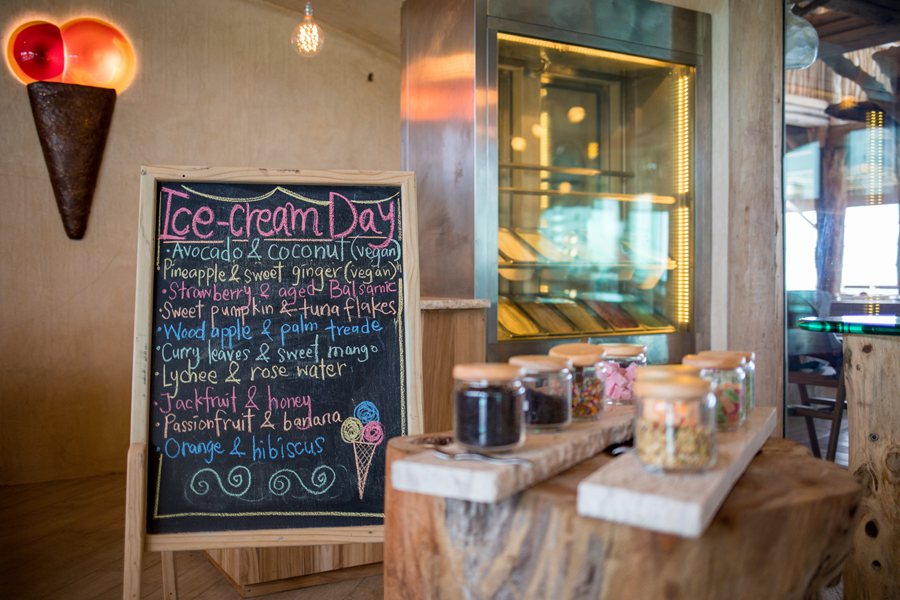 Ice-cream Day
· Avocado & coconut (vegan)
Pineapple & sweet ginger (vegan)
· Strawberry & aged Balsamic
· Sweet pumpkin & tuna flakes
· Wood apple & palm treade
· Curry leaves & sweet mango
· Lychee & rose water
· Jackfruit & honey
· Passionfruit & banana
· Orange & hibiscus